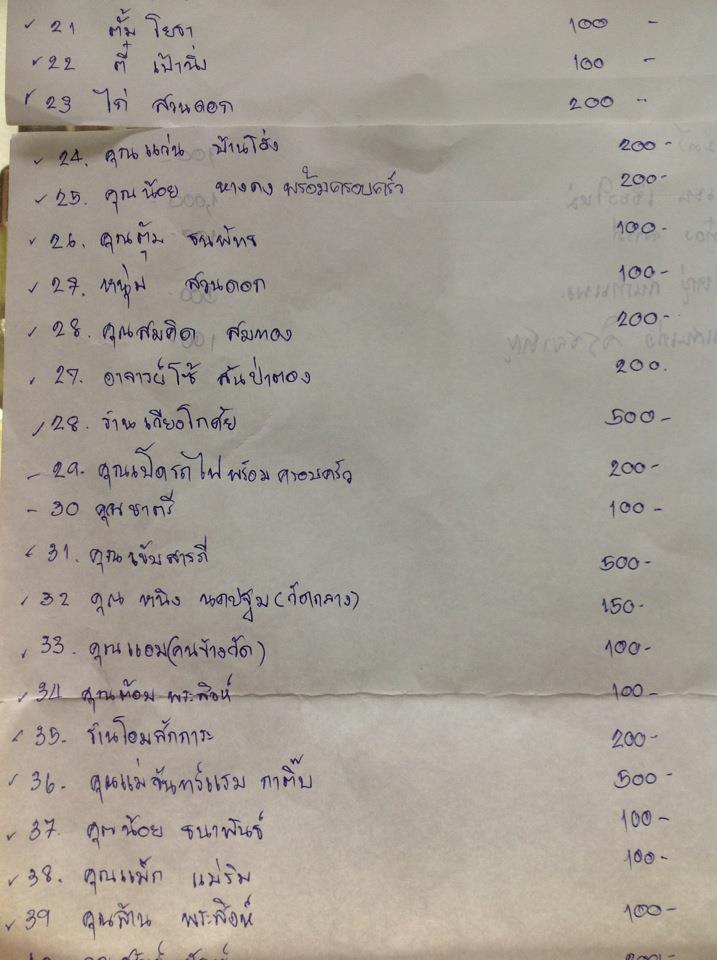 21 ตั้ม โยธา 100 -
22 ตี๋ เป่านิ่ง 100 -
23 ไก่ สวนดอก 200 -
24. คุณแก่น บ้านโฮ่ง 200-
25. คุณน้อย หางดง พร้อมครอบครัว 200-
26. คุณตุ้ม ธนพัทธ 100-
27. หนุ่ม สวนดอก 100-
28. คุณสมคิด สมทอง 200-
27. อาจารย์โซ้ สันป่าตอง 200.
28. ร้านเวียงโกศัย 500-
29. คุณเป็ดรถไฟ พร้อม ครอบครัว 200-
30 คุณชาตรี 100-
31. คุณเข้มสารภี 500-
32 คุณ หนิง นคปฐม (วัดกลาง) 150-
33. คุณแอม (คนข้างวัด) 100-
34 คุณต้อม พระสิงห์ 100-
35. ร้านโอมสักการะ 200-
36. คุณแม่จันทร์แรม กาติ๊บ 500-
37. คุณน้อย ธนาพันธ์ 100-
38. คุณแม็ก แม่ริม 100-
39 คุณส้าน พระสิงห์ 100-